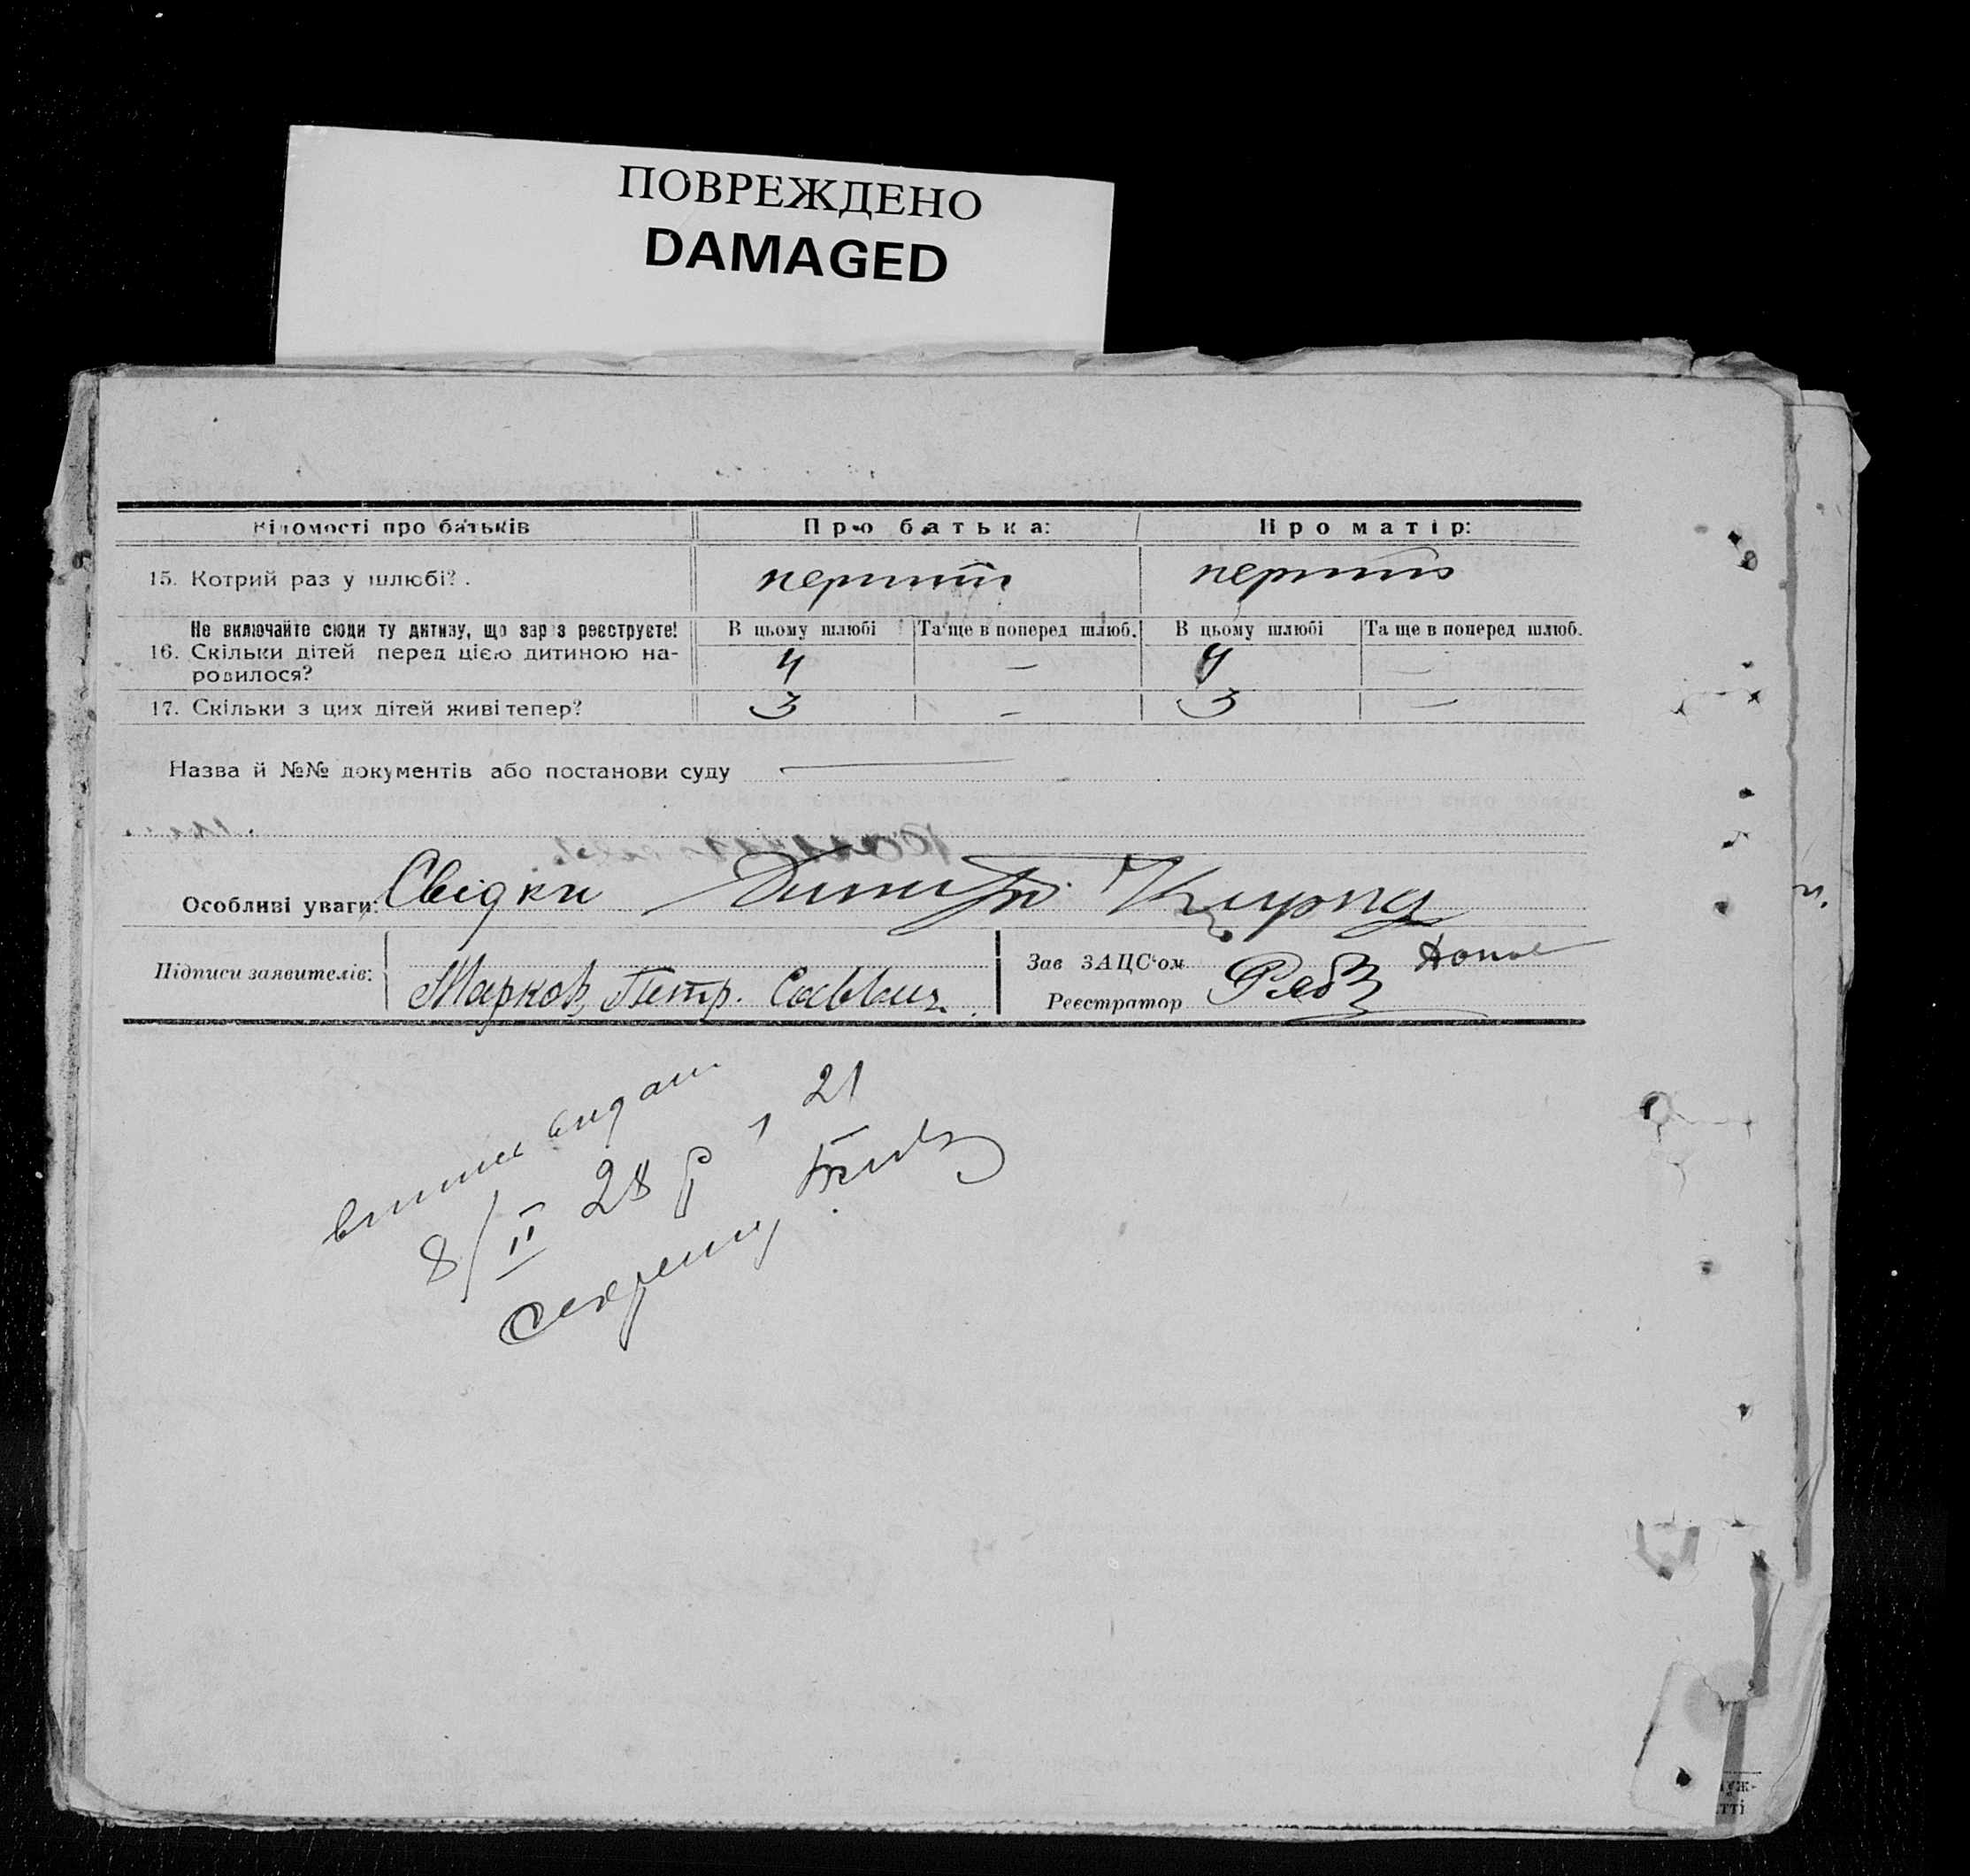 ПОВРЕЖДЕНО
DAMAGED
Відомості про батьків
Про батька:
Про матір:
15. Котрий раз у шлюбі?
перший
Не включайте сюди ту дитину, що зараз реєструєте!
В цьому шлюбі
Та ще в поперед шлюб.
В цьому шлюбі
Та ще в поперед шлюб.
16. Скільки дітей перед цією дитиною на-
родилося?
4
—
4
—
17. Скільки з цих дітей живі тепер?
3
—
3
—
Назва й №№ документів або постанови суду —
Особливі уваги: Свідки
Підписи заявителів:
Марков, Петр. Саввич.
Зав ЗАЦС'ом
Реєстратор
8/II 28 р 21